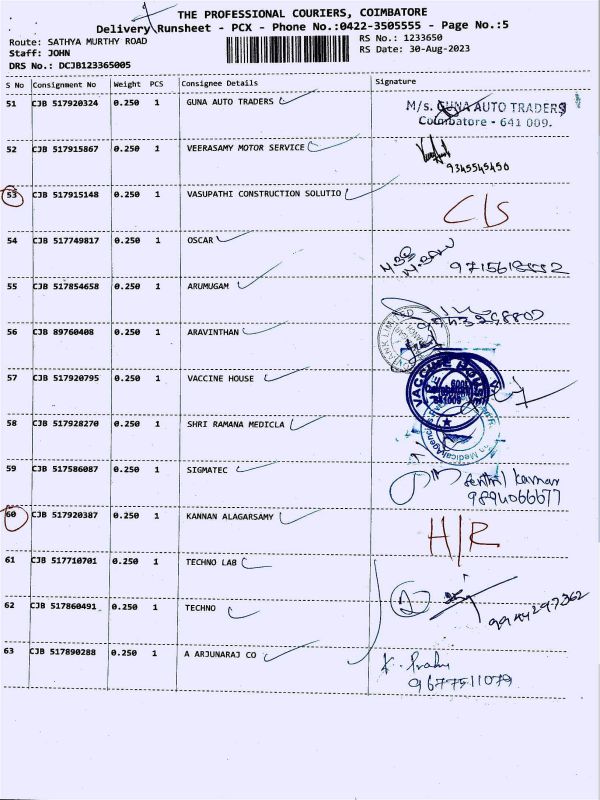 THE PROFESSIONAL COURIERS, COIMBATORE
Delivery Runsheet - PCX - Phone No.:0422-3505555 - Page No.:5
Route: SATHYA MURTHY ROAD
RS No.: 1233650
Staff: JOHN
RS Date: 30-Aug-2023
DRS No.: DCJB123365005
S No Consignment No Weight PCS Consignee Details Signature
51 CJB 517920324 0.250 1 GUNA AUTO TRADERS
M/s. GUNA AUTO TRADERS
Coimbatore - 641 009.
52 CJB 517915867 0.250 1 VEERASAMY MOTOR SERVICE
9345545450
53 CJB 517915148 0.250 1 VASUPATHI CONSTRUCTION SOLUTIO
C/S
54 CJB 517749817 0.250 1 OSCAR
55 CJB 517854658 0.250 1 ARUMUGAM
56 CJB 89760408 0.250 1 ARAVINTHAN
57 CJB 517920795 0.250 1 VACCINE HOUSE
VACCINE HOUSE
641009
58 CJB 517928270 0.250 1 SHRI RAMANA MEDICLA
Medical Agencies
59 CJB 517586087 0.250 1 SIGMATEC
Senthil kumar
9894066677
60 CJB 517920387 0.250 1 KANNAN ALAGARSAMY
H/R
61 CJB 517710701 0.250 1 TECHNO LAB
62 CJB 517860491 0.250 1 TECHNO
9944297362
63 CJB 517890288 0.250 1 A ARJUNARAJ CO
K. Prabu
9677511079